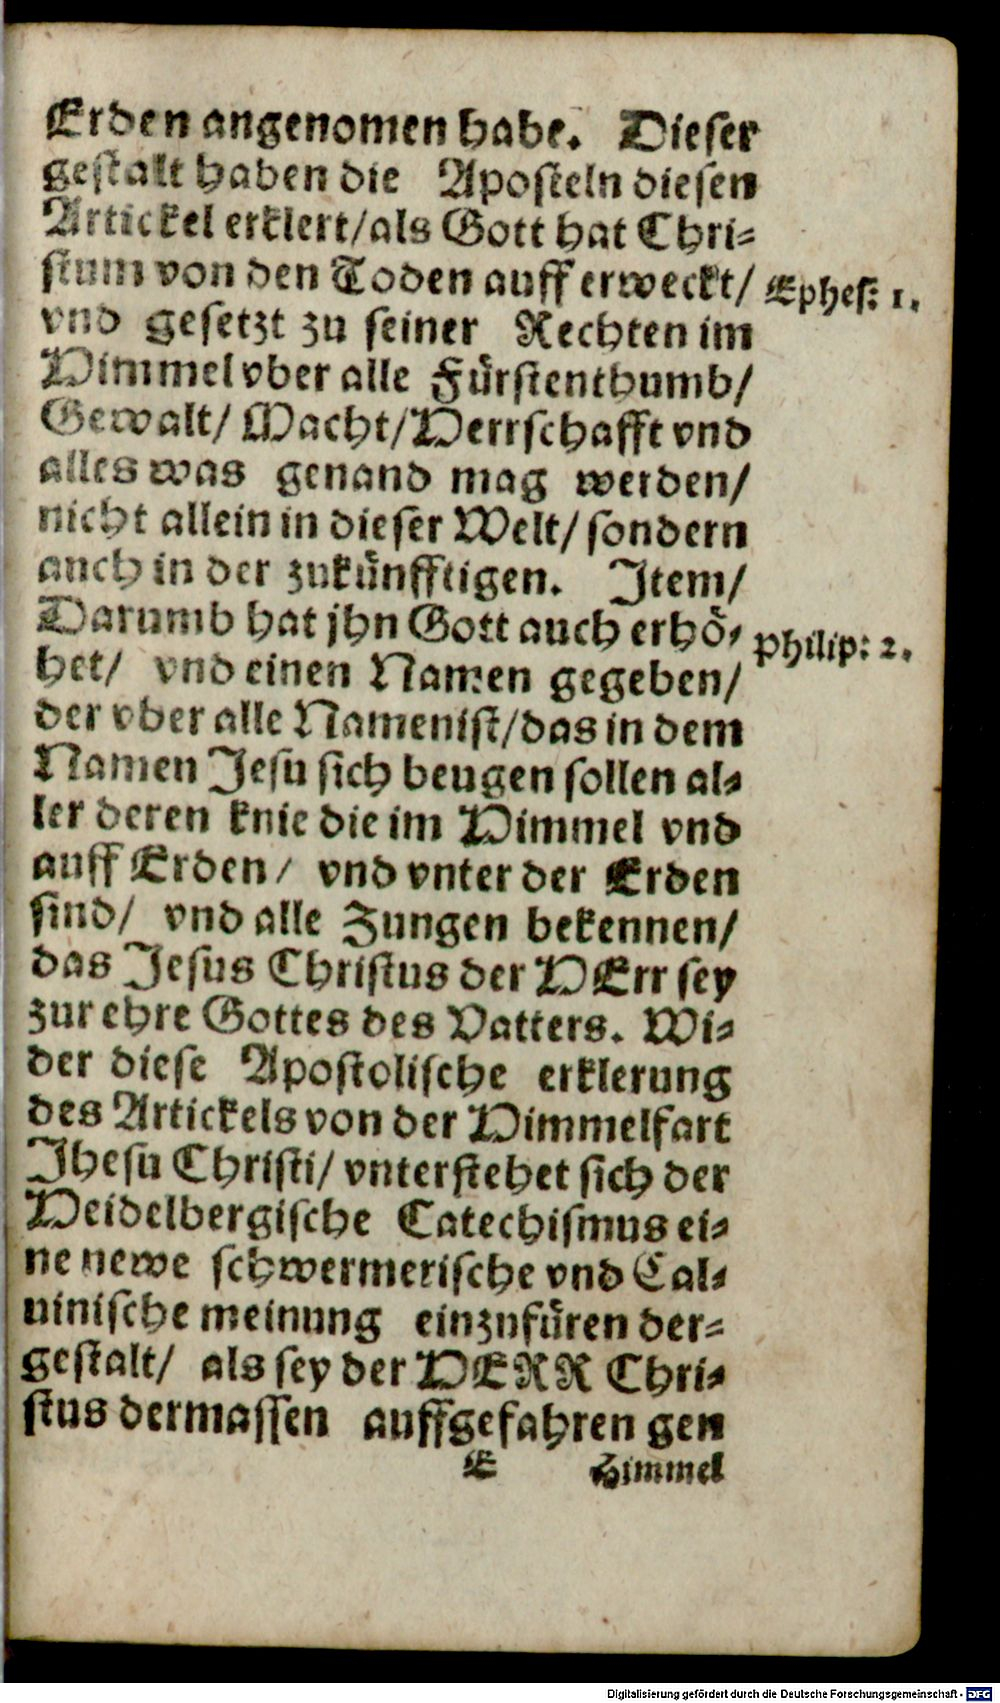 Erden angenomen habe. Dieser
gestalt haben die Aposteln diesen
Artickel erklert/als Gott hat Chri⸗
stum von den Toden auff erweckt/
Ephes: 1.
vnd gesetzt zu seiner Rechten im
Himmel vber alle Fürstenthumb/
Gewalt/ Macht/Herrschafft vnd
alles was genand mag werden/
nicht allein in dieser Welt/ sondern
auch in der zukünfftigen. Item/
Darumb hat jhn Gott auch erhö⸗
Philip: 2.
het/ vnd einen Namen gegeben/
der vber alle Namen ist/das in dem
Namen Jesu sich beugen sollen al⸗
ler deren knie die im Himmel vnd
auff Erden/ vnd vnter der Erden
sind/ vnd alle Zungen bekennen/
das Jesus Christus der HErr sey
zur ehre Gottes des Vatters. Wi⸗
der diese Apostolische erklerung
des Artickels von der Himmelfart
Jhesu Christi/ vnterstehet sich der
Heidelbergische Catechismus ei⸗
ne newe schwermerische vnd Cal⸗
uinische meinung einzufüren der⸗
gestalt/ als sey der HERR Chri⸗
stus dermassen auffgefahren gen
E Himmel
Digitalisierung gefördert durch die Deutsche Forschungsgemeinschaft - DFG